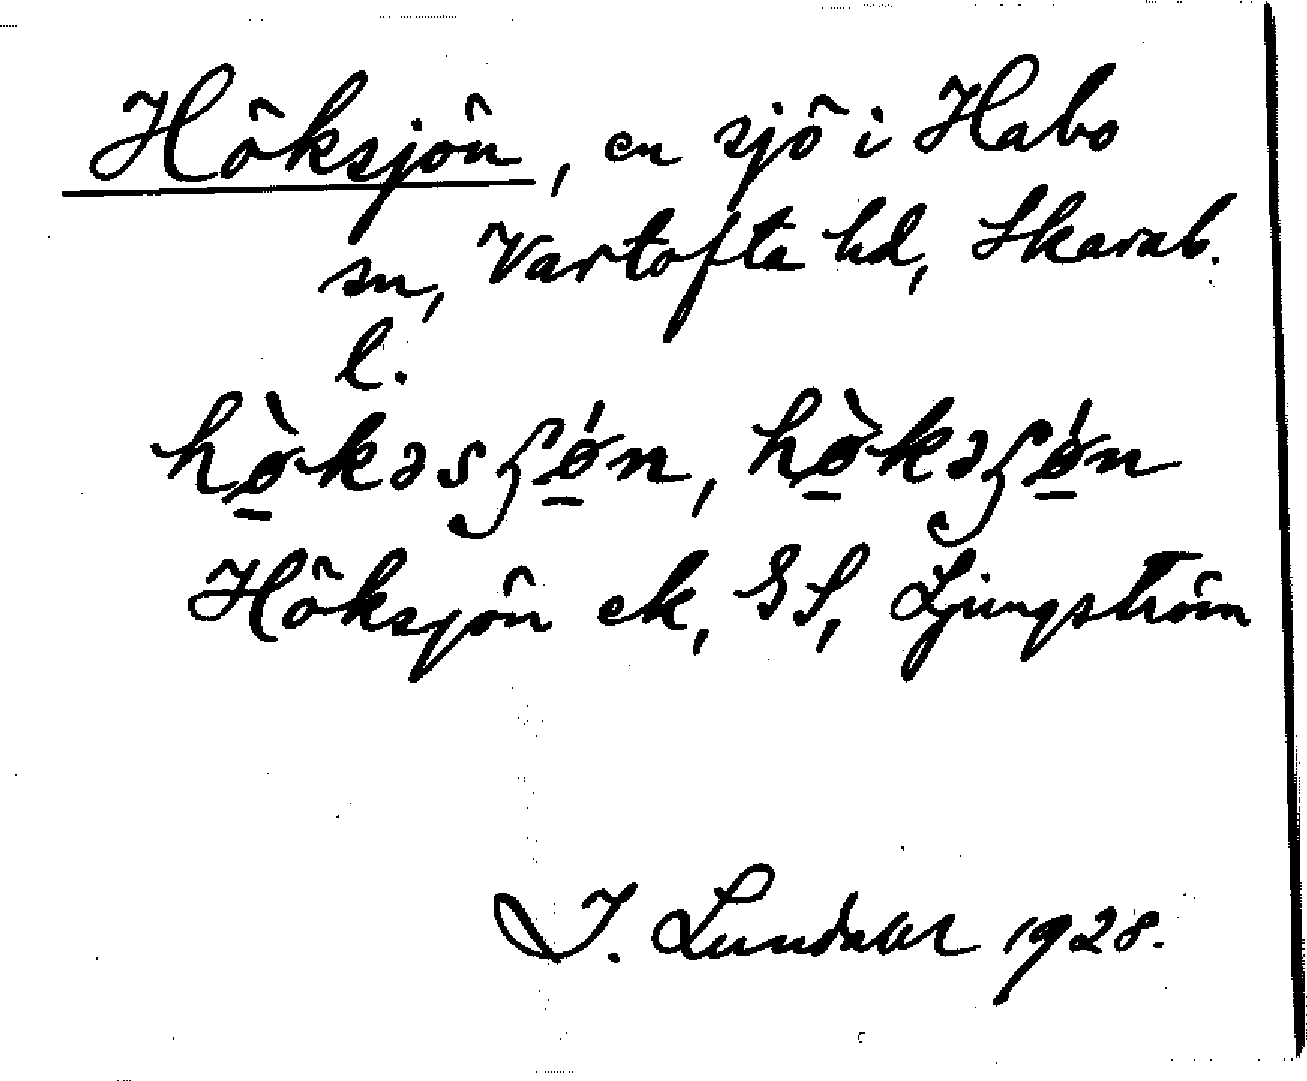 Höksjön, en sjö i Habo
sn, Vartofta hd, Skarab.
l.
hø̠̀kəsʒǿ̠n, hø̠̀kəʒǿ̠n
Höksjön ek, GS, Ljungström
I. Lundahl 1928.